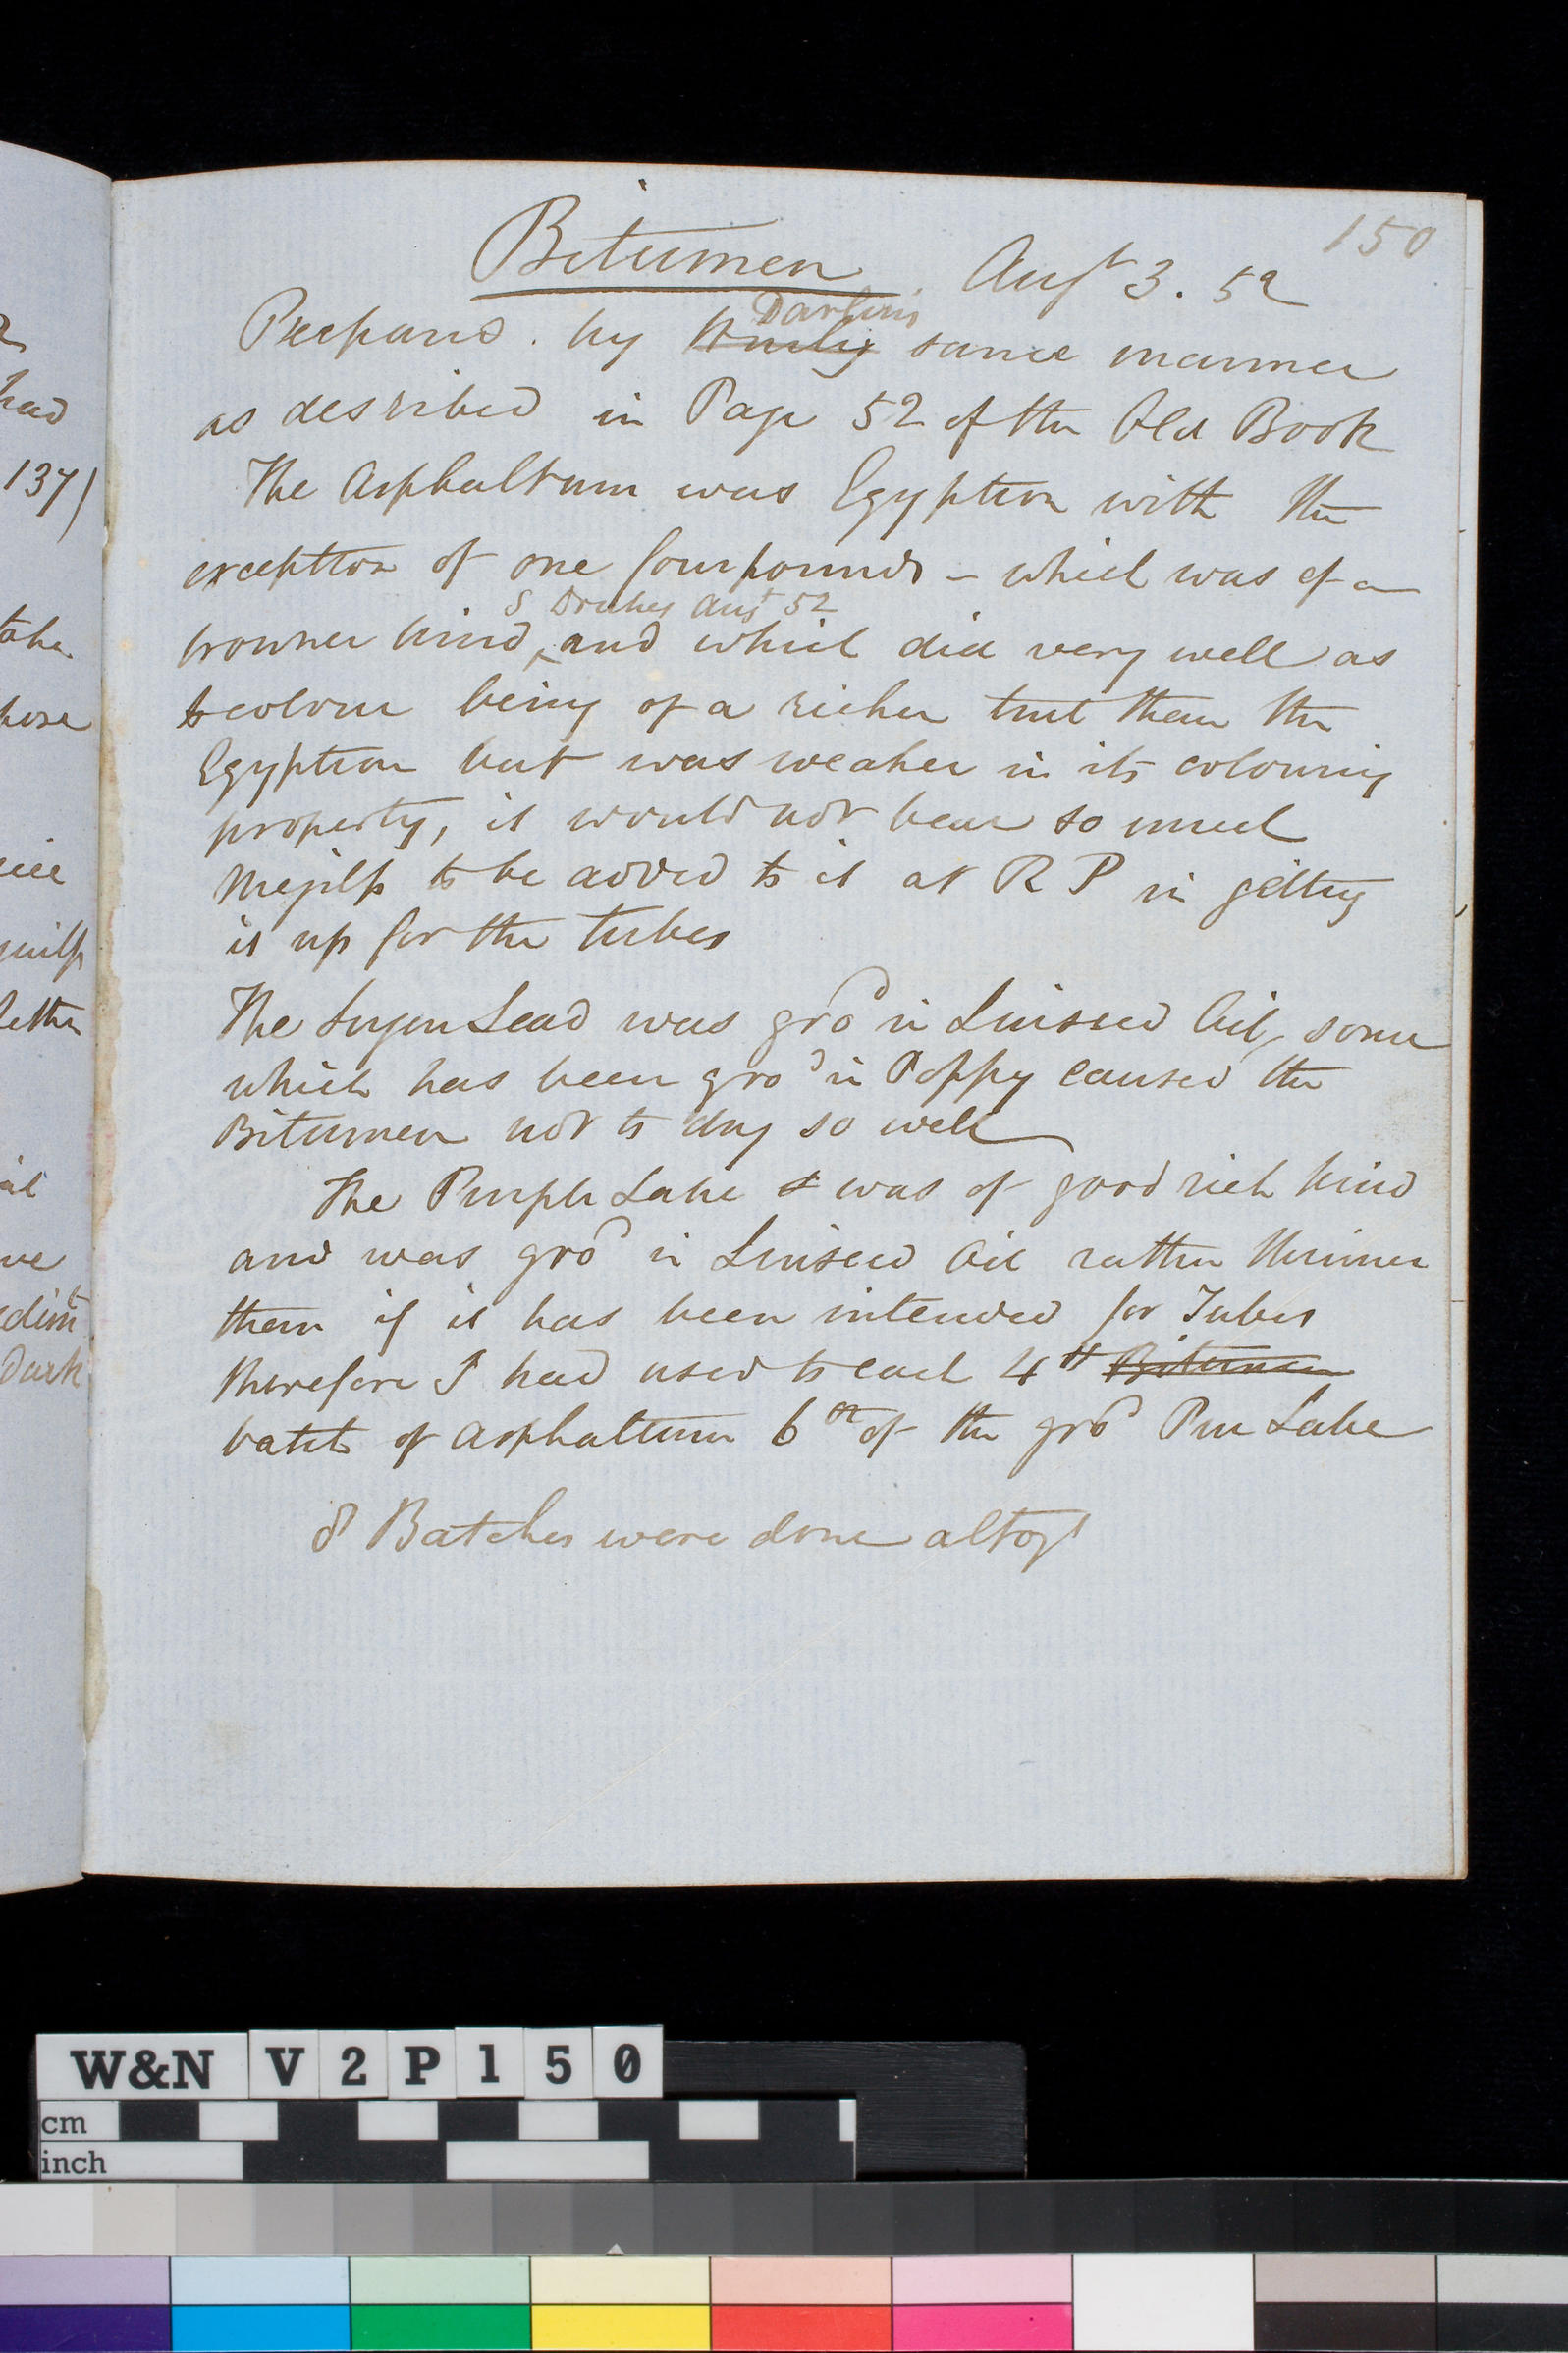 150
Bitumen Augt 3. 52
Darling
Prepared. by same manner
as described in Page 52 of the Old Book
The Asphaltum was Egyptian with the
exception of one four pounds - which was of a
S Drukes Augt 52
browner kind, and which did very well as
colour being of a richer tint than the
Egyptian but was weaker in its colouring
property, it would not bear so much
Megilp to be added to it at R P in getting
it up for the tubes
The Sugar Lead was gro'd in Linseed Oil, some
which has been gro'd in Poppy caused the
Bitumen not to dry so well
The Purple Lake was of good rich kind
and was gro'd in Linseed Oil rather thinner
than if it has been intended for Tubes
therefore I had used to each 4 lb Bitumen
batch of Asphaltum 6 oz of the gro'd Pur Lake
8 Batches were done altogr
had
137)
take
ve
dimt
Dark
W&N V 2 P 1 5 0
cm
inch